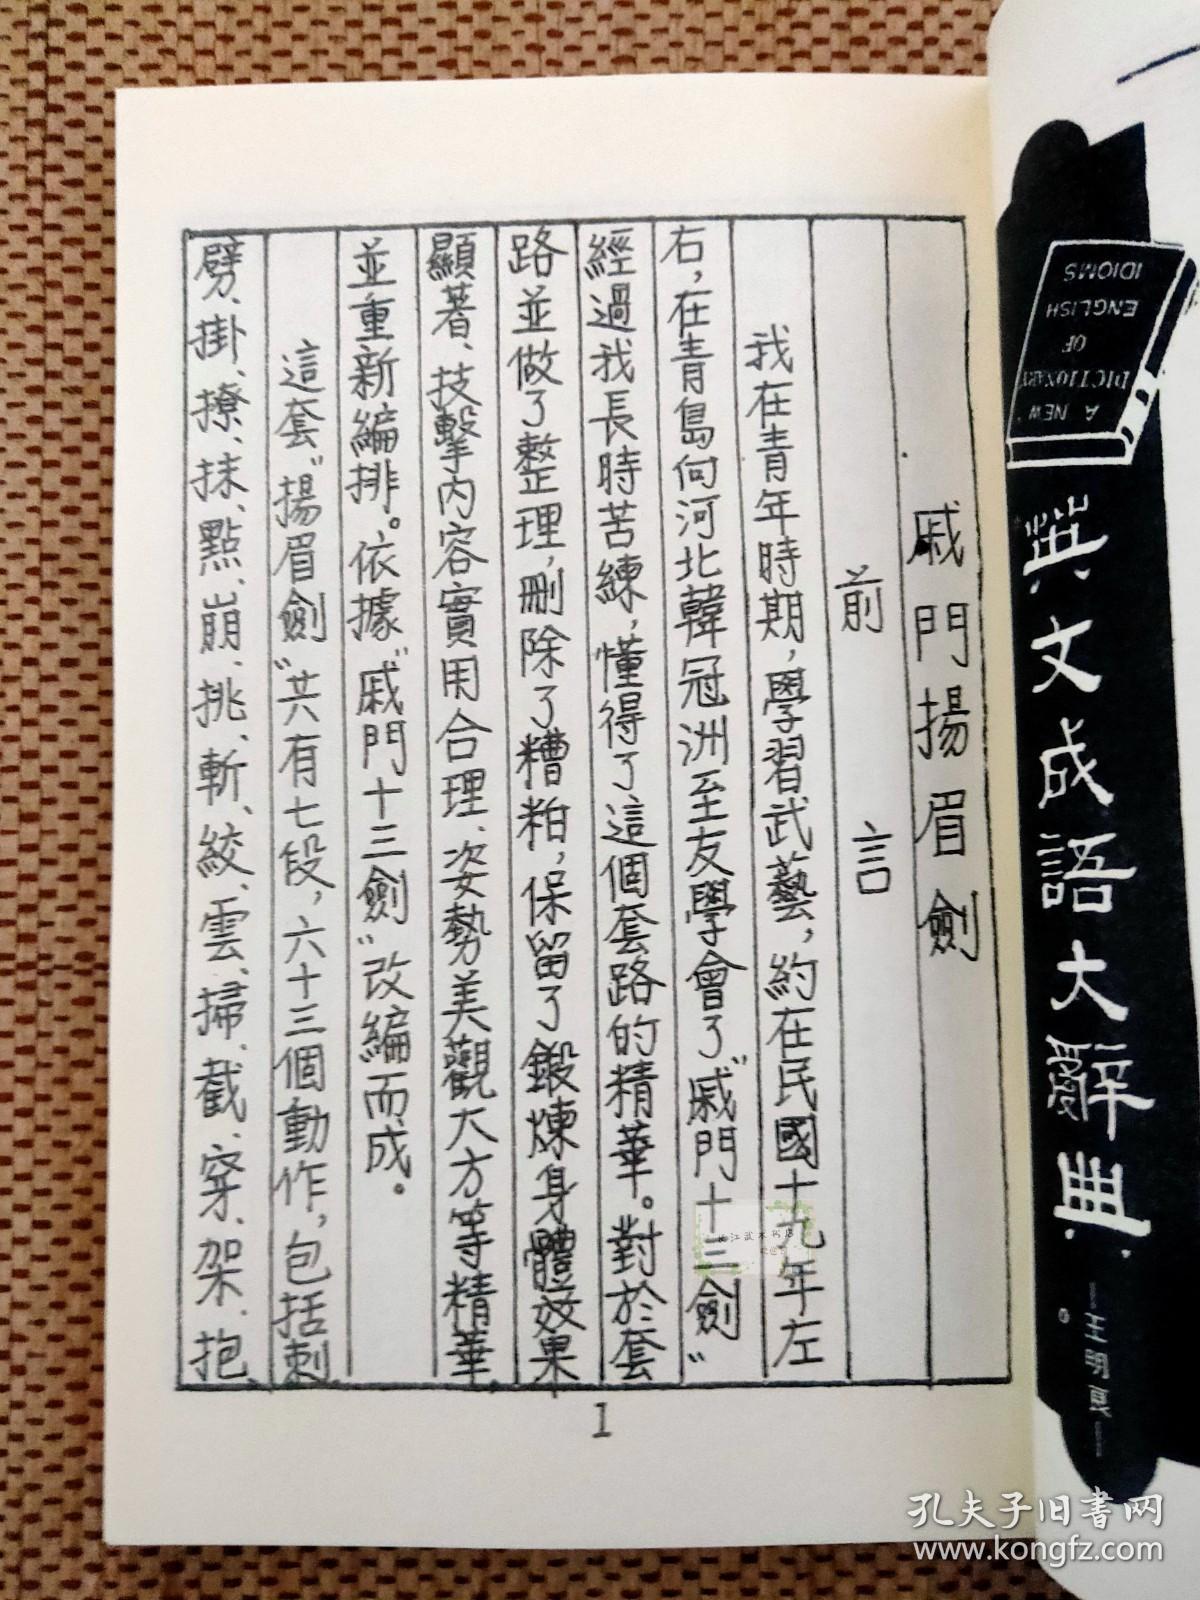 戚門揚眉劍
前言
我在青年時期，學習武藝，約在民國十九年左
右，在青島向河北韓冠洲至友學會了“戚門十三劍”
經過我長時苦練，懂得了這個套路的精華。對於套
路並做了整理，刪除了糟粕，保留了鍛煉身體效果
顯著、技擊內容實用合理、姿勢美觀大方等精華
並重新編排。依據“戚門十三劍”改編而成。
這套“揚眉劍”共有七段，六十三個動作，包括刺、
劈、掛、撩、抹、點、崩、挑、斬、絞、雲、掃、截、穿、架、抱、
1
A NEW
DICTIONARY
OF
ENGLISH
IDIOMS
英文成語大辭典
—王明良—
长江武术书店
孔夫子旧书网
www.kongfz.com